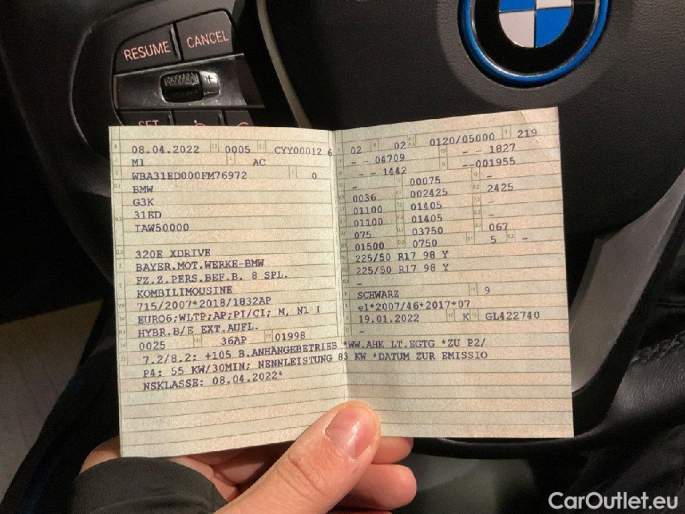 RESUME
CANCEL
SET
08.04.2022 0005 CYY00012 6
M1 AC
WBA31ED000FM76972 0
BMW
G3K
31ED
IAW50000
320E XDRIVE
BAYER.MOT.WERKE-BMW
FZ.Z.PERS.BEF.B. 8 SPL.
KOMBILIMOUSINE
715/2007*2018/1832AP
EURO6;WLTP;AP;PI/CI; M, N1 I
HYBR.B/E EXT.AUFL.
0025 36AP 01998
7.2/8.2: +105 B.ANHÄNGEBETRIEB *WW.AHK LT.EGTG *ZU P2/
P4: 55 KW/30MIN; NENNLEISTUNG 83 KW *DATUM ZUR EMISSIO
NSKLASSE: 08.04.2022*
02 02 0120/05000 219
- - 04709 - - 1827
- - 1442 - -001955
- 00075 -
0036 002425 2425
01100 01405 -
01100 01405 -
075 03750 067
01500 0750 5 -
225/50 R17 98 Y
225/50 R17 98 Y
-
SCHWARZ 9
e1*2007/46*2017*07
19.01.2022 K GL422740
-
CarOutlet.eu